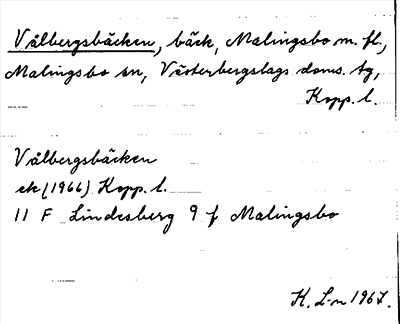 Vålbergsbäcken, bäck, Malingsbo m. fl.,
Malingsbo sn, Västerbergslags doms. tg,
Kopp. l.
Vålbergsbäcken
ek (1966) Kopp. l.
11 F Lindesberg 9 f Malingsbo
K. L-n 1967.